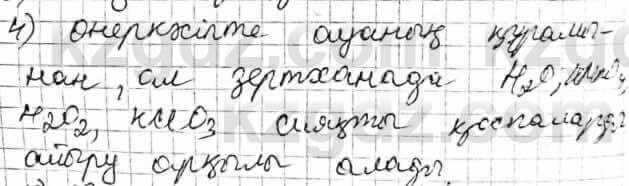 4) өнеркәсіпте ауаның құрамы-
нан, ал зертханада H₂O, KMnO₄,
H₂O₂, KClO₃ сияқты қоспаларды
айыру арқылы алады.